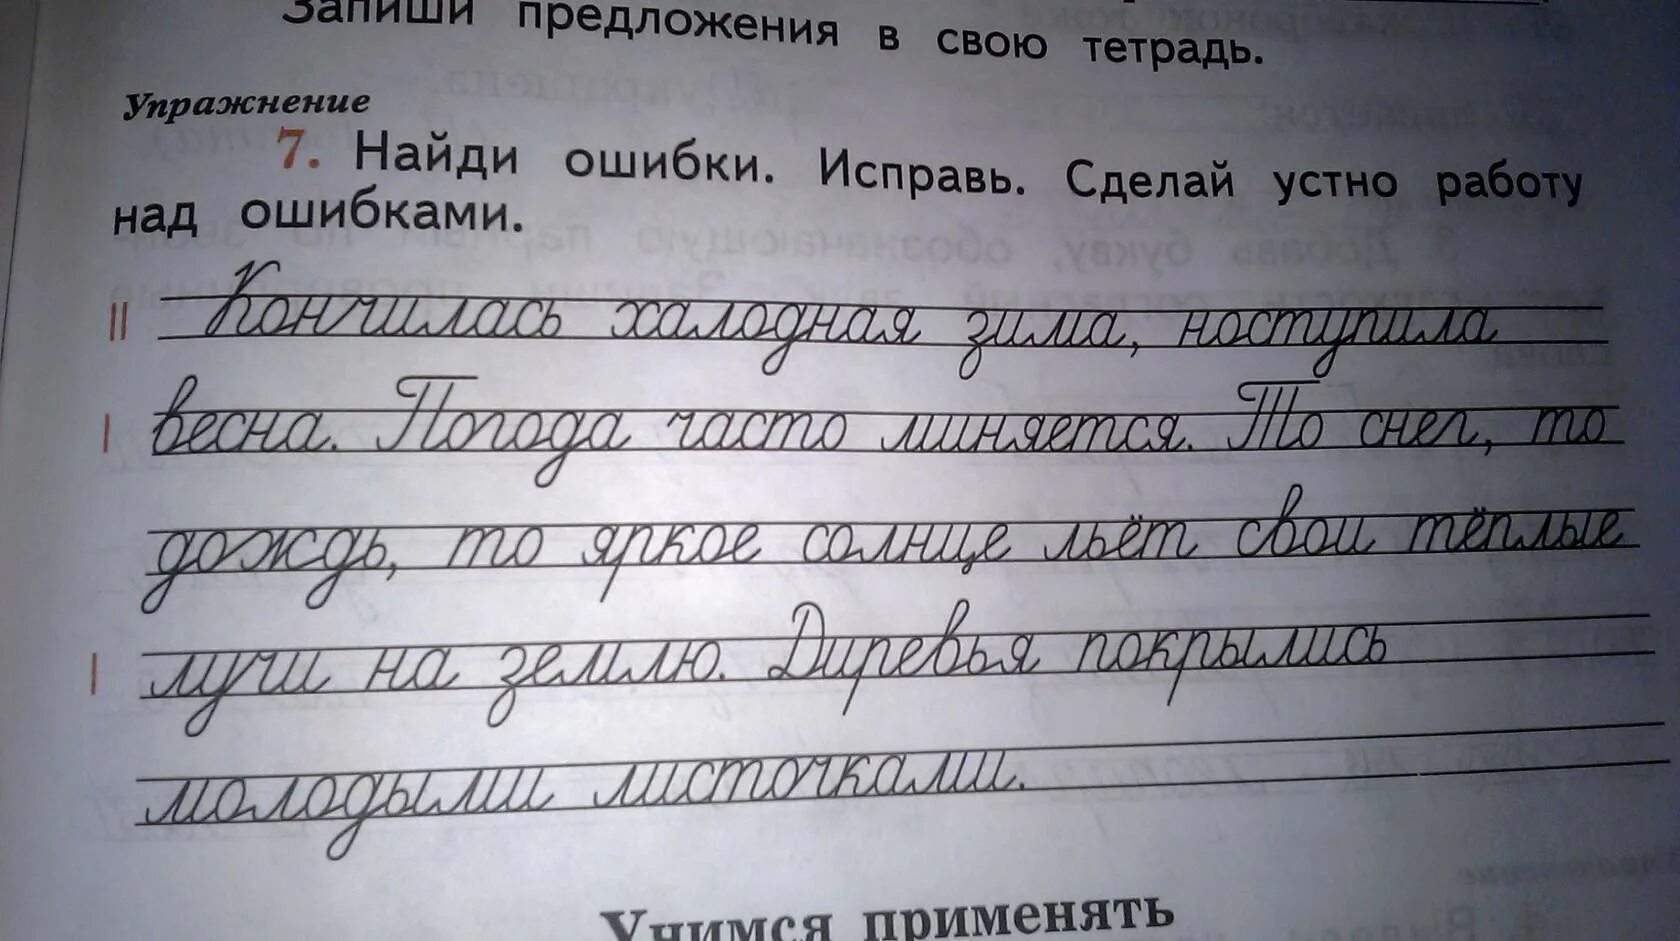 Запиши предложения в свою тетрадь.
Упражнение
7. Найди ошибки. Исправь. Сделай устно работу
над ошибками.
II Кончилась халодная зима, ноступила
I весна. Погода часто миняется. То снег, то
дождь, то яркое солнце льёт свои тёплые
I лучи на землю. Диревья покрылись
молодыми листочками.
Учимся применять